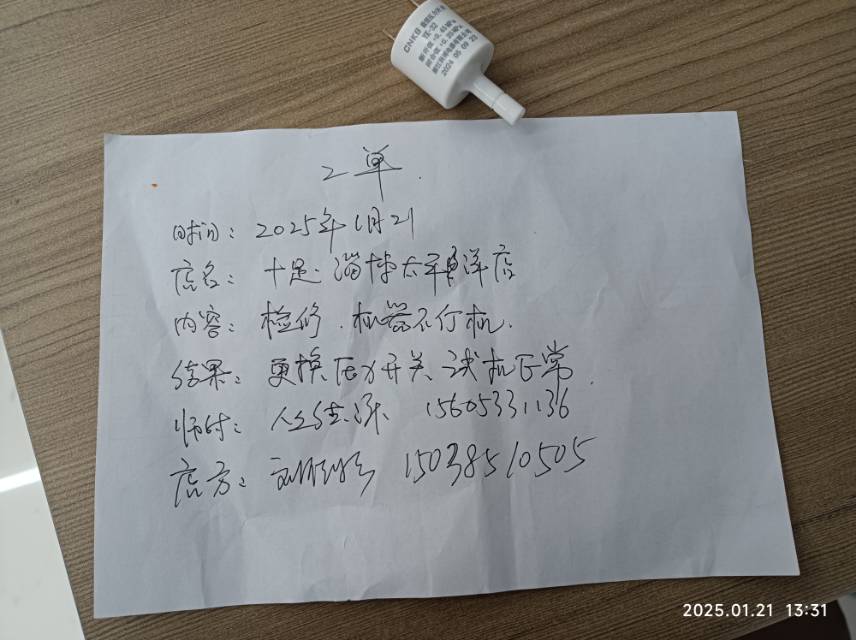 CNKB
YK-32
2024 05 09 23
2单.
时间: 2025年1月21
店名: 十足. 淄博太平洋店
内容: 检修. 机器不行机.
结果: 更换压力开关 试机正常.
师付: 15605331136
店方: 15038510505
2025.01.21 13:31